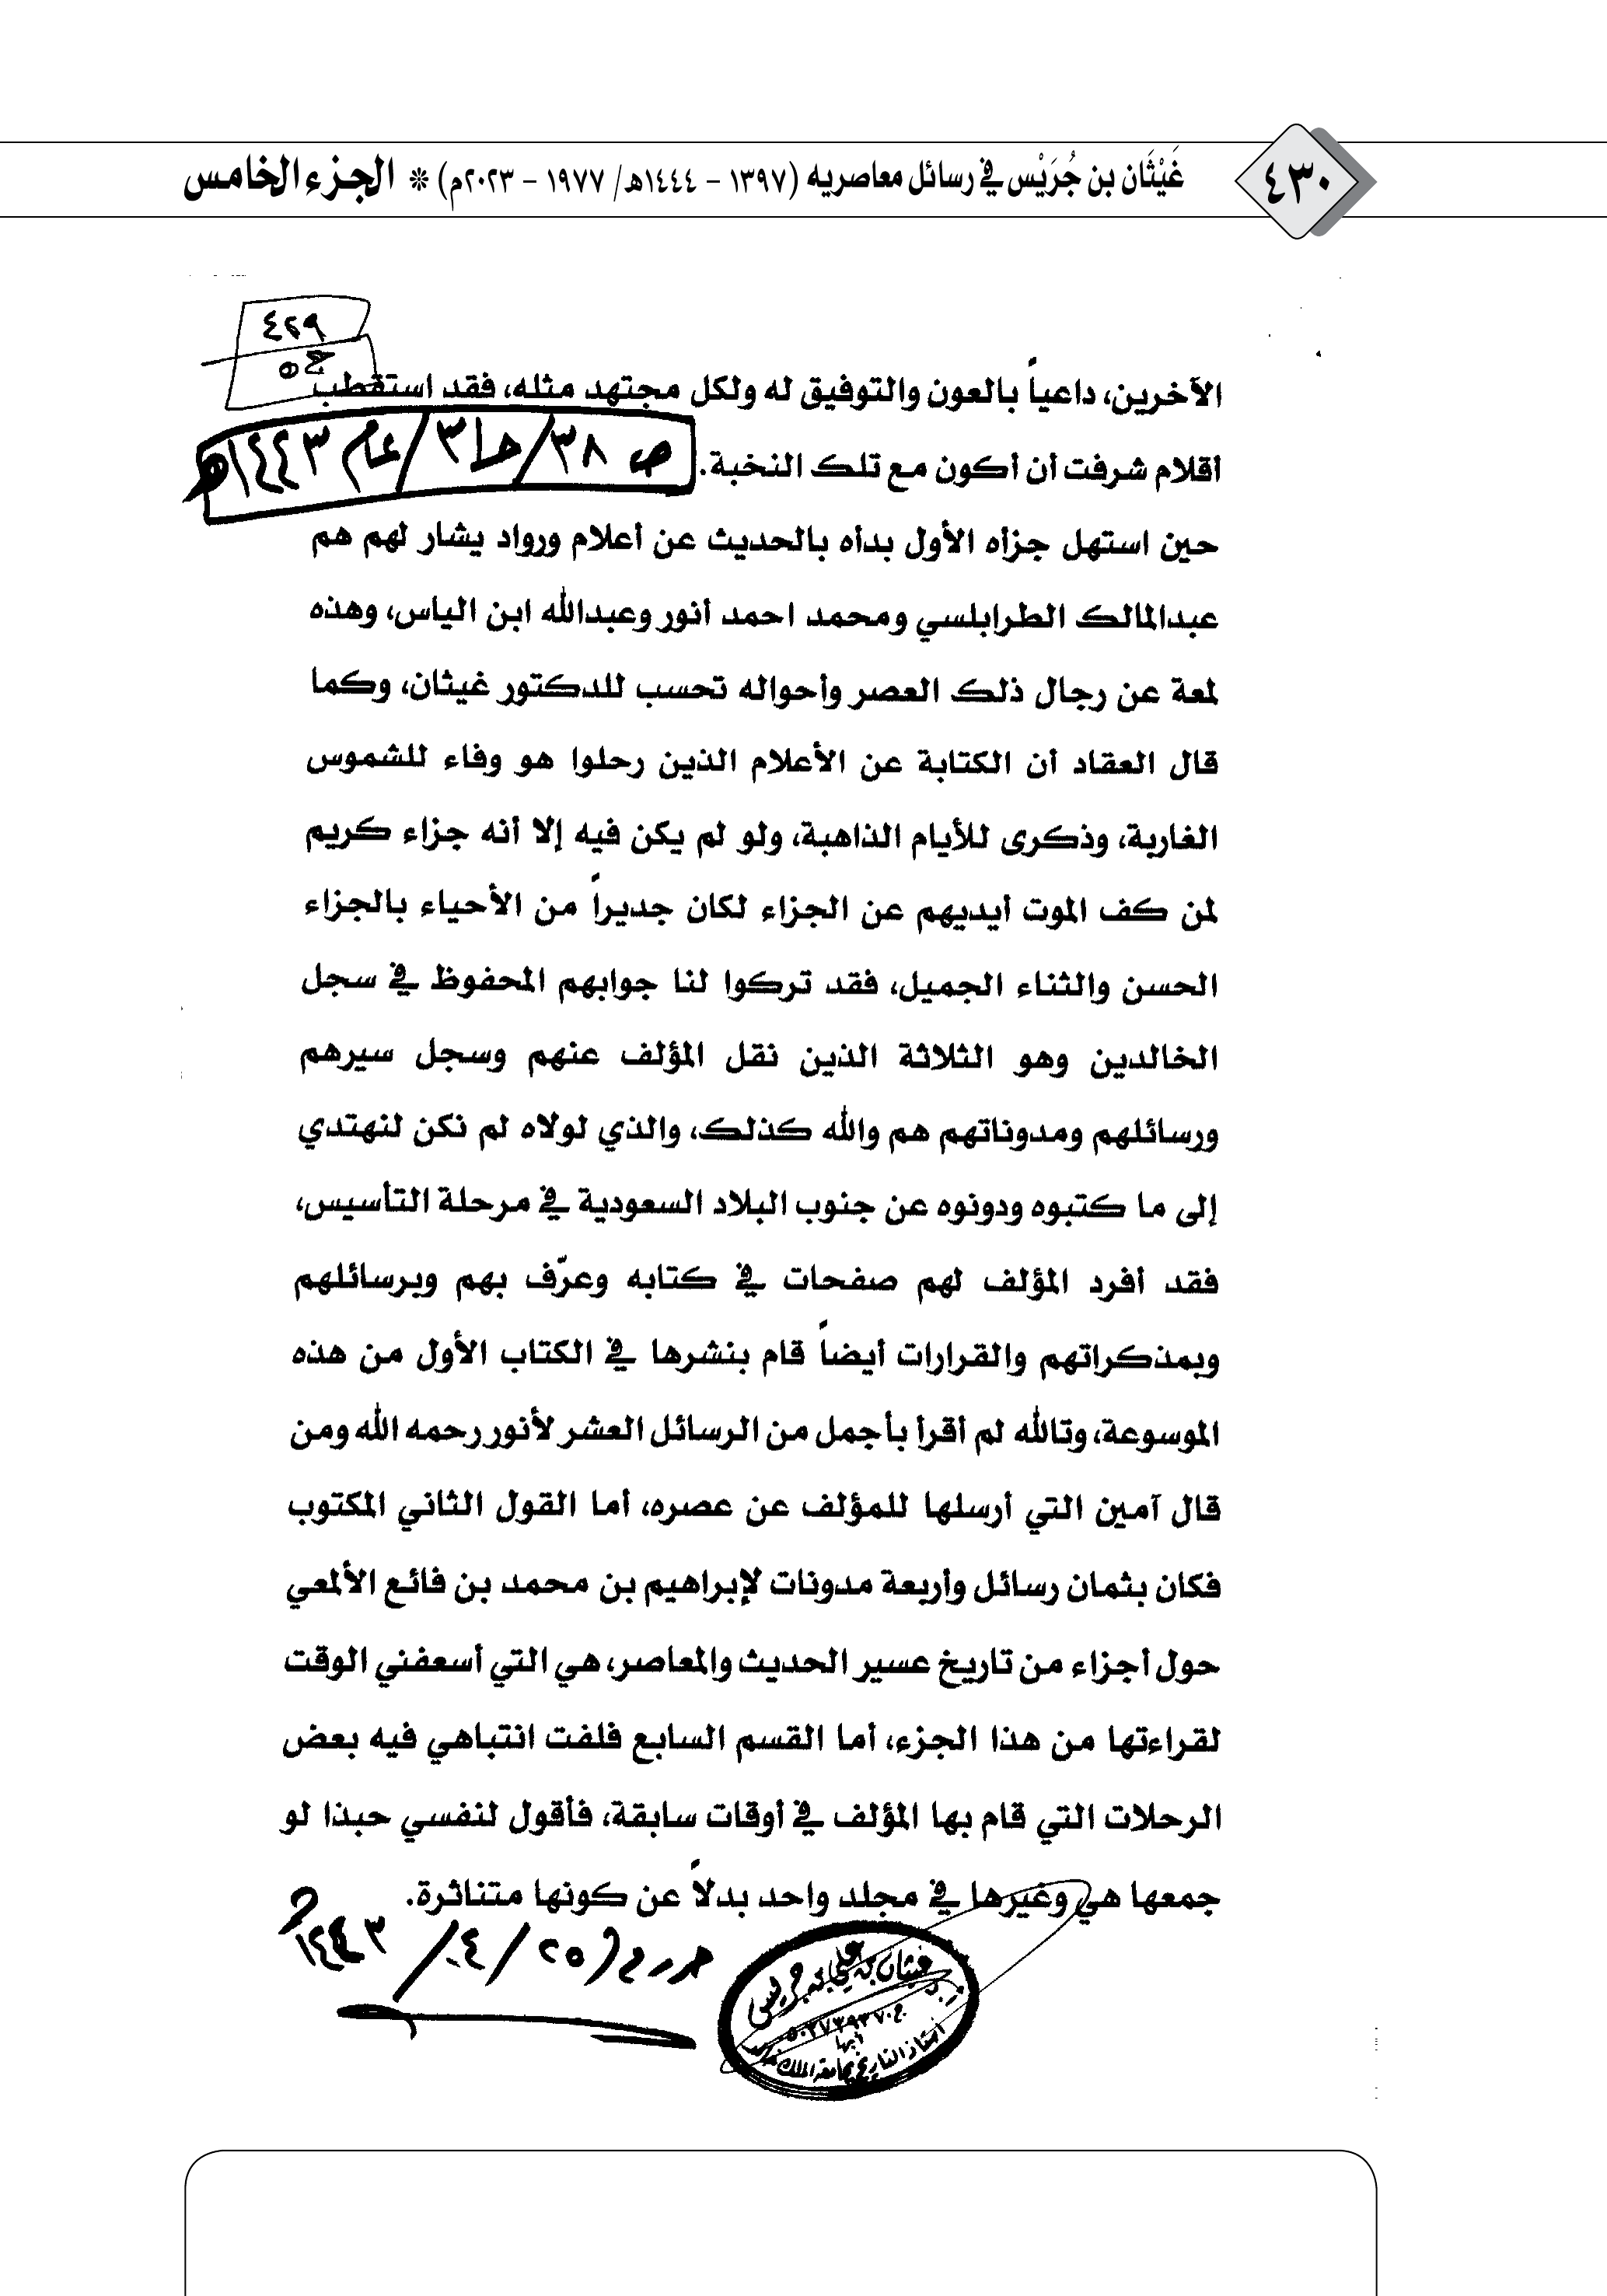 ٤٣٠
غَيْثَان بن جُرَيْس في رسائل معاصريه (١٣٩٧ - ١٤٤٤هـ/ ١٩٧٧ - ٢٠٢٣م) * الجزء الخامس
٤٢٩
ج٥
الآخرين، داعياً بالعون والتوفيق له ولكل مجتهد مثله، فقد استقطب
أقلام شرفت أن أكون مع تلك النخبة.
ص ٣٨/حا٣/عام ١٤٤٣هـ
حين استهل جزأه الأول بدأه بالحديث عن أعلام ورواد يشار لهم هم
عبدالمالك الطرابلسي ومحمد احمد أنور وعبدالله ابن الياس، وهذه
لمعة عن رجال ذلك العصر وأحواله تحسب للدكتور غيثان، وكما
قال العقاد أن الكتابة عن الأعلام الذين رحلوا هو وفاء للشموس
الغاربة، وذكرى للأيام الذاهبة، ولو لم يكن فيه إلا أنه جزاء كريم
لمن كف الموت أيديهم عن الجزاء لكان جديراً من الأحياء بالجزاء
الحسن والثناء الجميل، فقد تركوا لنا جوابهم المحفوظ في سجل
الخالدين وهو الثلاثة الذين نقل المؤلف عنهم وسجل سيرهم
ورسائلهم ومدوناتهم هم والله كذلك، والذي لولاه لم نكن لنهتدي
إلى ما كتبوه ودونوه عن جنوب البلاد السعودية في مرحلة التأسيس،
فقد أفرد المؤلف لهم صفحات في كتابه وعرّف بهم وبرسائلهم
وبمذكراتهم والقرارات أيضاً قام بنشرها في الكتاب الأول من هذه
الموسوعة، وتالله لم أقرأ بأجمل من الرسائل العشر لأنور رحمه الله ومن
قال آمين التي أرسلها للمؤلف عن عصره، أما القول الثاني المكتوب
فكان بثمان رسائل وأربعة مدونات لإبراهيم بن محمد بن فائع الألمعي
حول أجزاء من تاريخ عسير الحديث والمعاصر، هي التي أسعفني الوقت
لقراءتها من هذا الجزء، أما القسم السابع فلفت انتباهي فيه بعض
الرحلات التي قام بها المؤلف في أوقات سابقة، فأقول لنفسي حبذا لو
جمعها هي وغيرها في مجلد واحد بدلاً عن كونها متناثرة.
٢٥/٠٤/١٤٤٣هـ
غيثان بن علي بن جريس
أبها
أستاذ التاريخ بجامعة الملك خالد